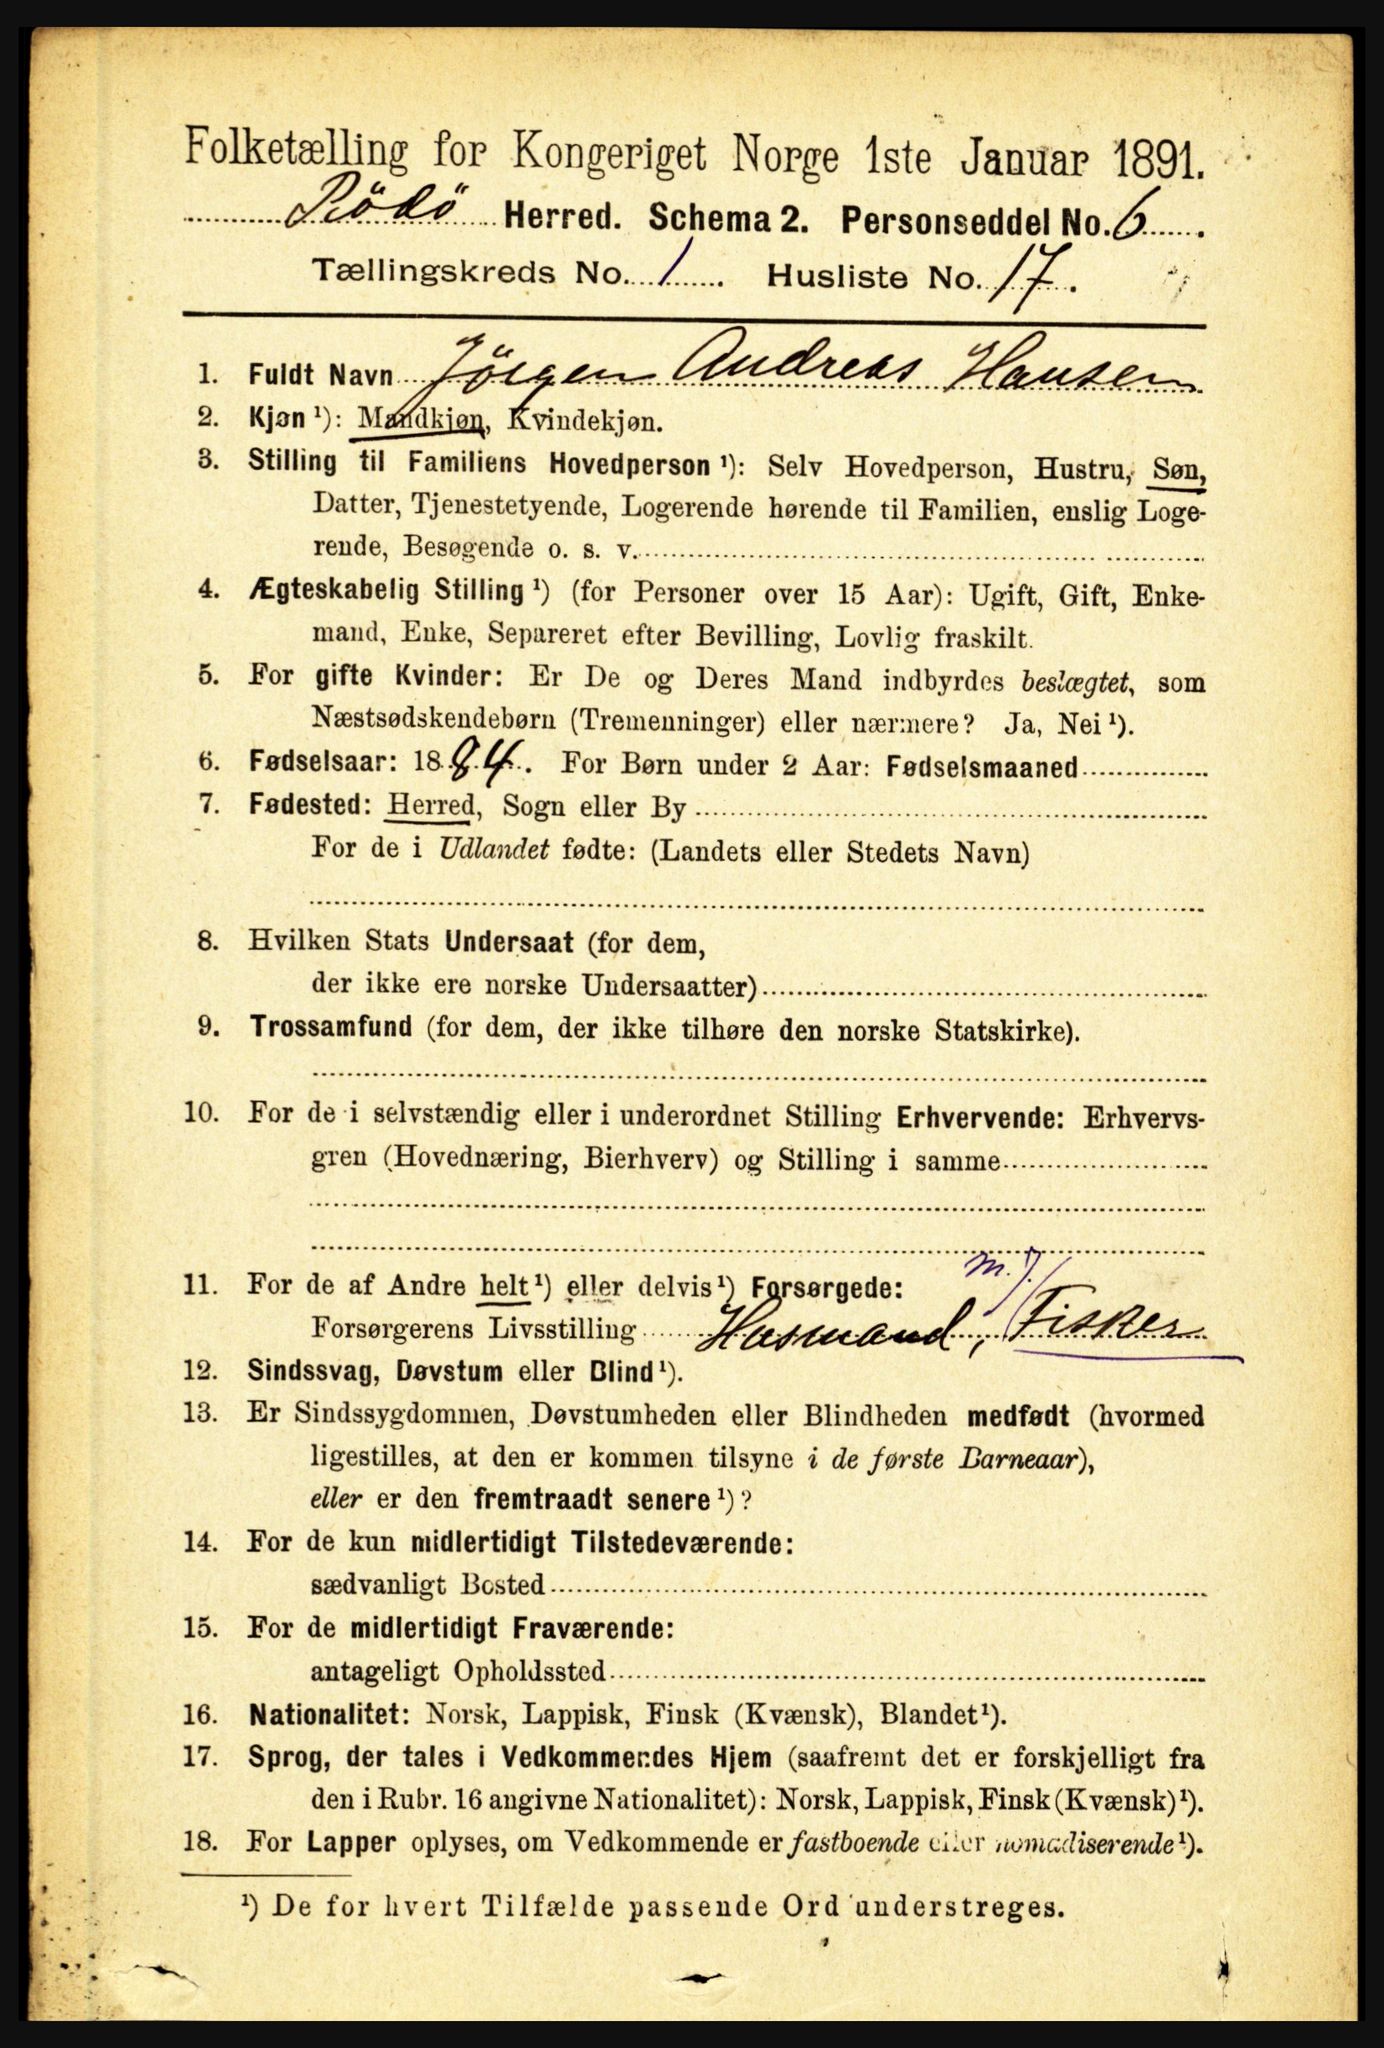 Folketælling for Kongeriget Norge 1ste Januar 1891.
Rödö Herred. Schema 2. Personseddel No. 6.
Tællingskreds No. 1. Husliste No. 17.
1. Fuldt Navn Jörgen Andreas Hansen
2. Kjøn ¹): Mandkjøn, Kvindekjøn.
3. Stilling til Familiens Hovedperson ¹): Selv Hovedperson, Hustru, Søn,
Datter, Tjenestetyende, Logerende hørende til Familien, enslig Loge-
rende, Besøgende o. s. v.
4. Ægteskabelig Stilling ¹) (for Personer over 15 Aar): Ugift, Gift, Enke-
mand, Enke, Separeret efter Bevilling, Lovlig fraskilt.
5. For gifte Kvinder: Er De og Deres Mand indbyrdes beslægtet, som
Næstsødskendebørn (Tremenninger) eller nærmere? Ja, Nei ¹).
6. Fødselsaar: 1884. For Børn under 2 Aar: Fødselsmaaned
7. Fødested: Herred, Sogn eller By
For de i Udlandet fødte: (Landets eller Stedets Navn)
8. Hvilken Stats Undersaat (for dem,
der ikke ere norske Undersaatter)
9. Trossamfund (for dem, der ikke tilhøre den norske Statskirke).
10. For de i selvstændig eller i underordnet Stilling Erhvervende: Erhvervs-
gren (Hovednæring, Bierhverv) og Stilling i samme
11. For de af Andre helt ¹) eller delvis ¹) Forsørgede: m. J.
Forsørgerens Livsstilling Husmand, Fisker
12. Sindssvag, Døvstum eller Blind ¹).
13. Er Sindssygdommen, Døvstumheden eller Blindheden medfødt (hvormed
ligestilles, at den er kommen tilsyne i de første Barneaar),
eller er den fremtraadt senere ¹)?
14. For de kun midlertidigt Tilstedeværende:
sædvanligt Bosted
15. For de midlertidigt Fraværende:
antageligt Opholdssted
16. Nationalitet: Norsk, Lappisk, Finsk (Kvænsk), Blandet ¹).
17. Sprog, der tales i Vedkommendes Hjem (saafremt det er forskjelligt fra
den i Rubr. 16 angivne Nationalitet): Norsk, Lappisk, Finsk (Kvænsk) ¹).
18. For Lapper oplyses, om Vedkommende er fastboende eller nomadiserende ¹).
¹) De for hvert Tilfælde passende Ord understreges.